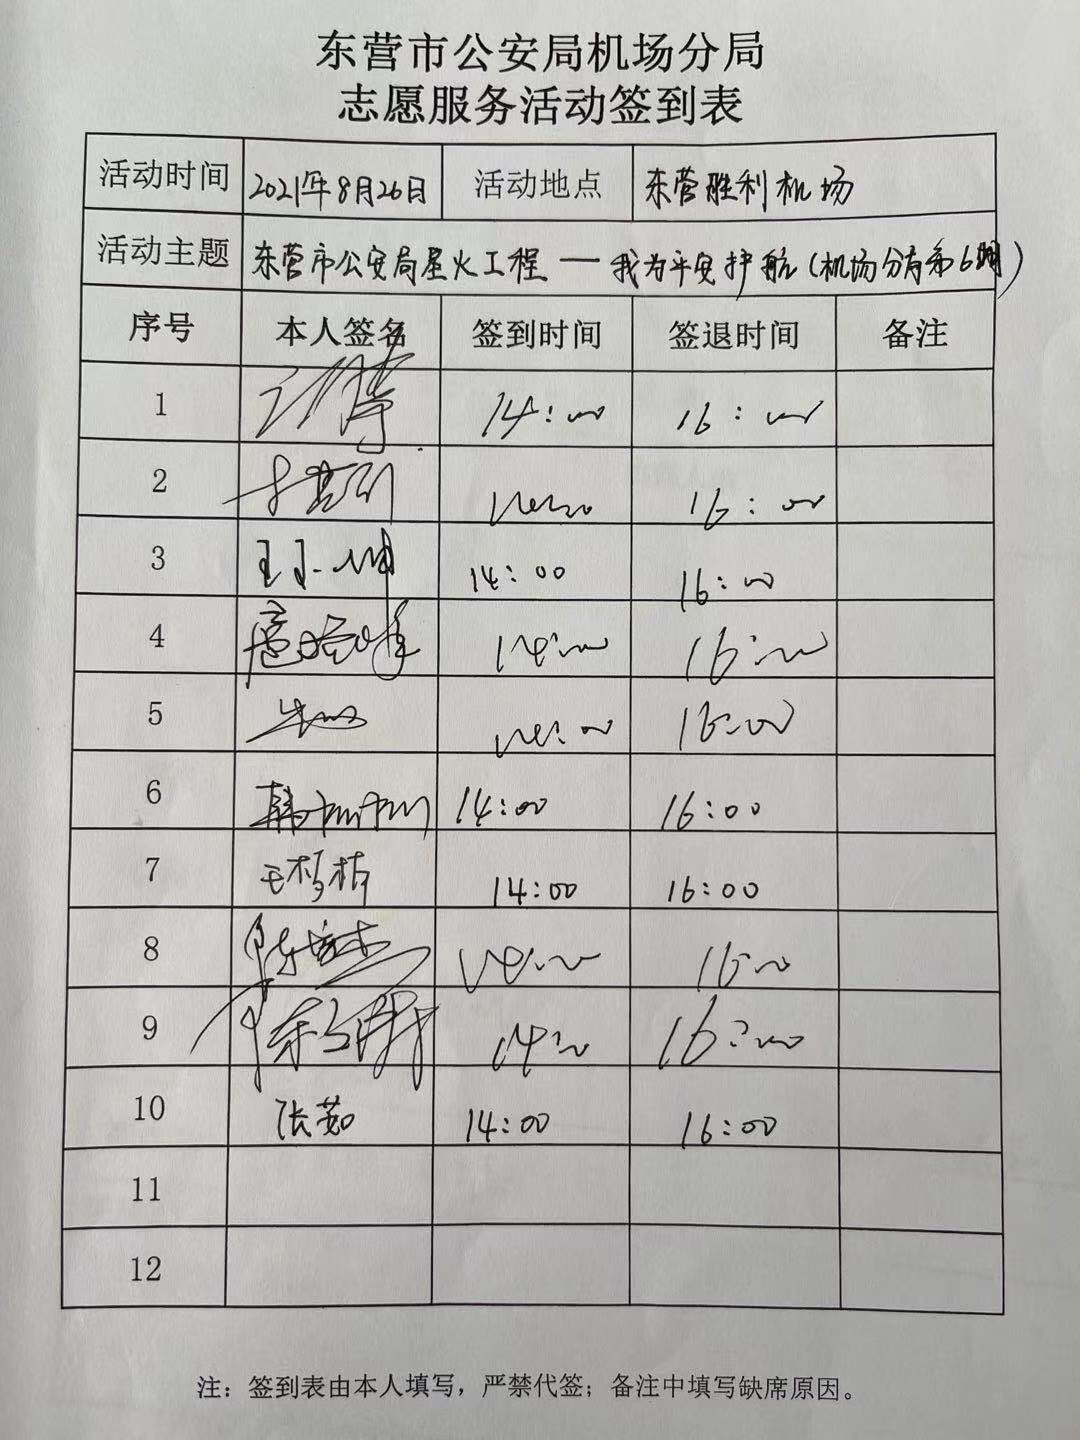 东营市公安局机场分局
志愿服务活动签到表
活动时间 2021年8月26日 活动地点 东营胜利机场
活动主题 东营市公安局星火工程 — 我为平安护航(机场分局第6期)
序号 本人签名 签到时间 签退时间 备注
1 14:00 16:00
2 14:00 16:00
3 14:00 16:00
4 14:00 16:00
5 14:00 16:00
6 14:00 16:00
7 14:00 16:00
8 14:00 16:00
9 14:00 16:00
10 张茹 14:00 16:00
11
12
注：签到表由本人填写，严禁代签；备注中填写缺席原因。